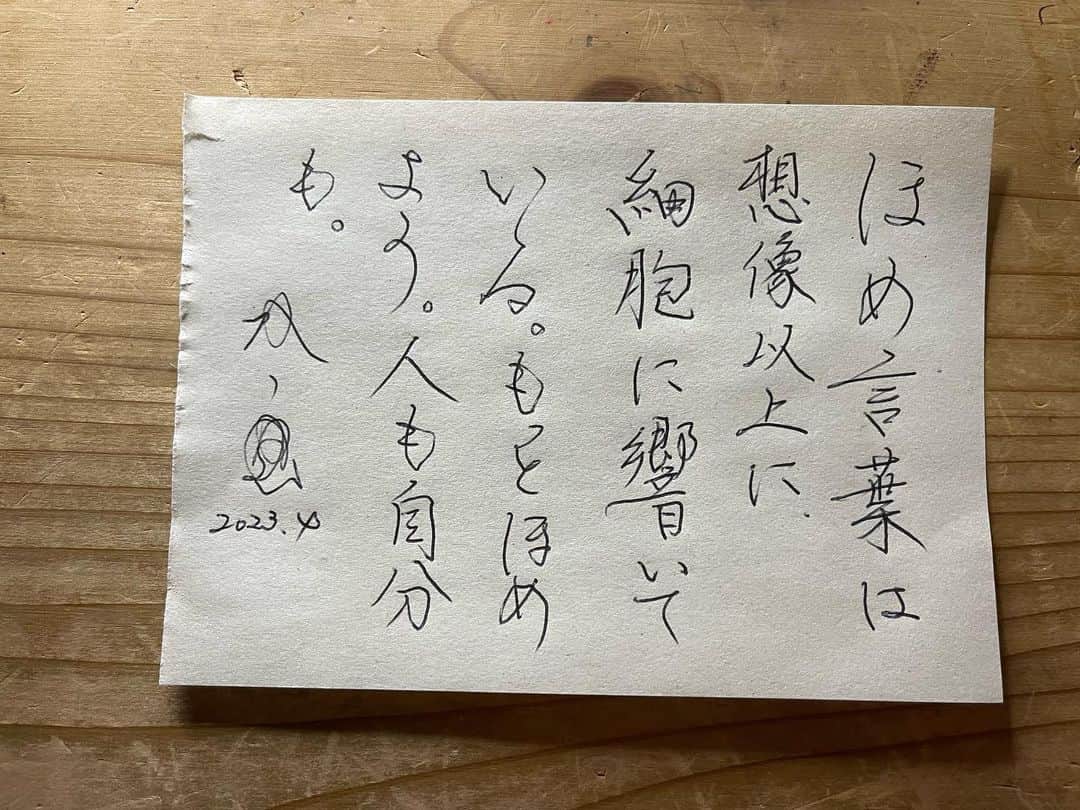 ほめ言葉は
想像以上に
細胞に響いて
いる。もっとほめ
よう。人も自分
も。
2023.4